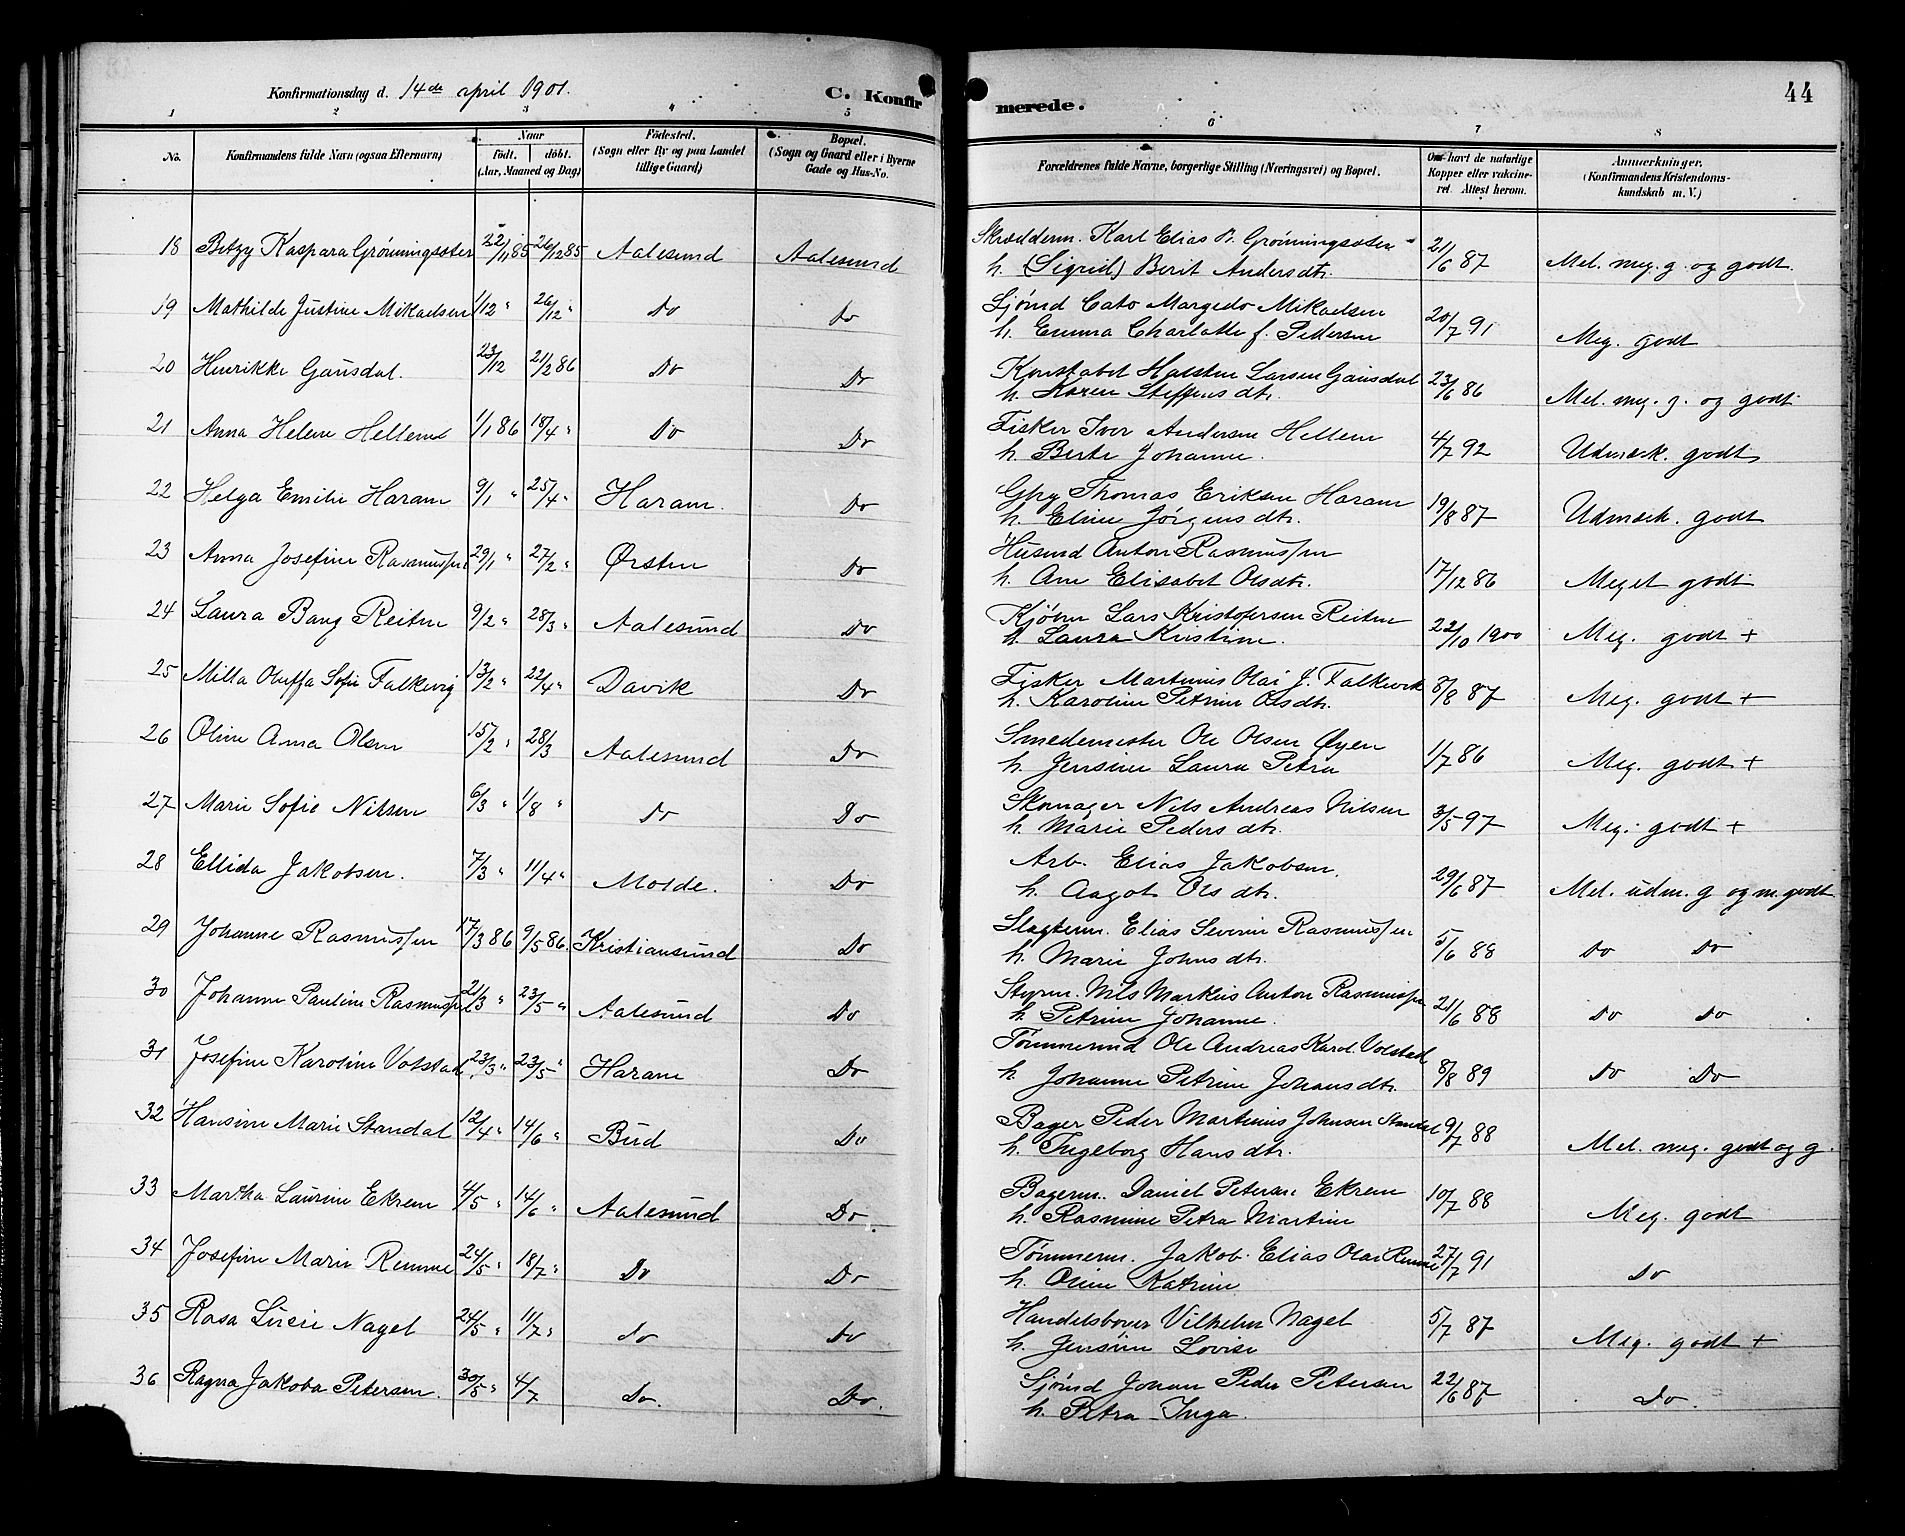 Konfirmationsdag d. 14de april 1901. C. Konfir merede. 44
1 2 3 4 5 6 7 8
No. Konfirmandens fulde Navn (ogsaa Efternavn) Naar født. døbt. (Aar, Maaned og Dag) Fødested. (Sogn eller By og paa Landet tillige Gaard) Bopæl. (Sogn og Gaard eller i Byerne Gade og Hus-No. Forældrenes fulde Navne, borgerlige Stilling (Næringsvei) og Bopæl. Om havt de naturlige Kopper eller vaccineret. Attest herom. Anmærkninger. (Konfirmandens Kristendomskundskab m. V.)
18 Betzy Kaspara Grønningsæter 22/11 85 26/12 85 Aalesund Aalesund Skrædderm. Karl Elias P. Grønningsæter 21/6 87 Mel. meg. g. og godt.
h. (Sigrid) Berit Andersdtr.
19 Mathilde Justine Mikaelsen 1/12 " 26/12 " Do Do Sjømd Cato Margido Mikaelsen 20/7 91 Meg. godt
h. Emma Charlotte f. Pedersen
20 Henrikke Gausdal. 23/12 21/2 86 Do Do Konstabel Halsten Larsen Gausdal 23/6 86 Mel. meg. g. og godt.
h. Karen Steffensdtr.
21 Anna Helene Hellem 1/1 86 18/4 " Do Do Fisker Iver Andersen Hellem 4/7 92 Udmærk. godt
h. Berte Johanne.
22 Helga Emilie Haram 9/1 " 25/4 " Haram. Do Thomas Eriksen Haram 19/8 87 Udmærk. godt
h. Eline Jørgensdtr.
23 Anna Josefine Rasmussen 29/1 " 27/2 " Ørsten Do Husmd Anton Rasmussen 17/12 86 Meget godt
h. Ane Elisabet Olsdtr.
24 Laura Bang Reiten 9/2 " 28/3 " Aalesund Do Kjøbm Lars Kristofersen Reiten 22/10 1900 Meg. godt +
h. Laura Kristine.
25 Milla Oluffa Sofie Falkevig 13/2 " 22/4 " Davik Do Fisker Martinus Olai J. Falkevik 8/8 87 Meg. godt +
h. Karoline Petrine Olsdtr.
26 Oline Anna Olsen 15/2 " 28/3 Aalesund Do Smedemester Ole Olsen Øyen 1/7 86 Meg. godt +
h. Jensine Laura Petra
27 Marie Sofie Nilsen 6/3 " 1/8 " Do Do Skomager Nils Andreas Nilsen 3/5 97 Meg. godt +
h. Marie Pedersdtr.
28 Ellida Jakobsen. 7/3 " 11/4 " Molde. Do Arb. Elias Jakobsen. 29/6 87 Mel. udm. g og m. godt
h. Aagot Olsdtr.
29 Johanne Rasmussen 17/3 86 9/5 86. Kristiansund Do Slagterm. Elias Severin Rasmussen 5/6 88 Do Do
h. Marie Johnsdtr.
30 Johanne Pauline Rasmussen 21/3 " 23/5 " Aalesund Do Styrm. Nils Markus Anton Rasmussen 21/6 88 Do Do
h. Petrine Johanne.
31 Josefine Karoline Volstad 23/3 " 23/5 " Haram Do Tømmermd Ole Andreas Karol. Volstad 8/8 89 Do Do
h. Johanne Petrine Johansdtr.
32 Hansine Marie Standal 12/4 " 14/6 " Bud Do Bager Peder Martinus Johnsen Standal 9/7 88 Mel. meg. godt og g.
h. Ingeborg Hansdtr.
33 Martha Laurine Ekrem 4/5 " 14/6 " Aalesund Do. Bagerm. Daniel Petersen Ekrem 10/7 88 Meg. godt
h. Rasmine Petra Martine
34 Josefine Marie Remme 24/5 " 18/7 " Do Do Tømmerm. Jakob Elias Olai Remme 27/7 91 Do
h. Oline Katrine
35 Rosa Lucie Nagel 24/5 " 11/7 " Do Do Handelsbover Vilhelm Nagel 5/7 87 Meg. godt +
h. Jensine Lovise
36 Ragna Jakoba Petersen. 30/5 " 4/7 Do. Do. Sjømd Johan Peder Petersen 22/6 87 Do.
h. Petra Inga.